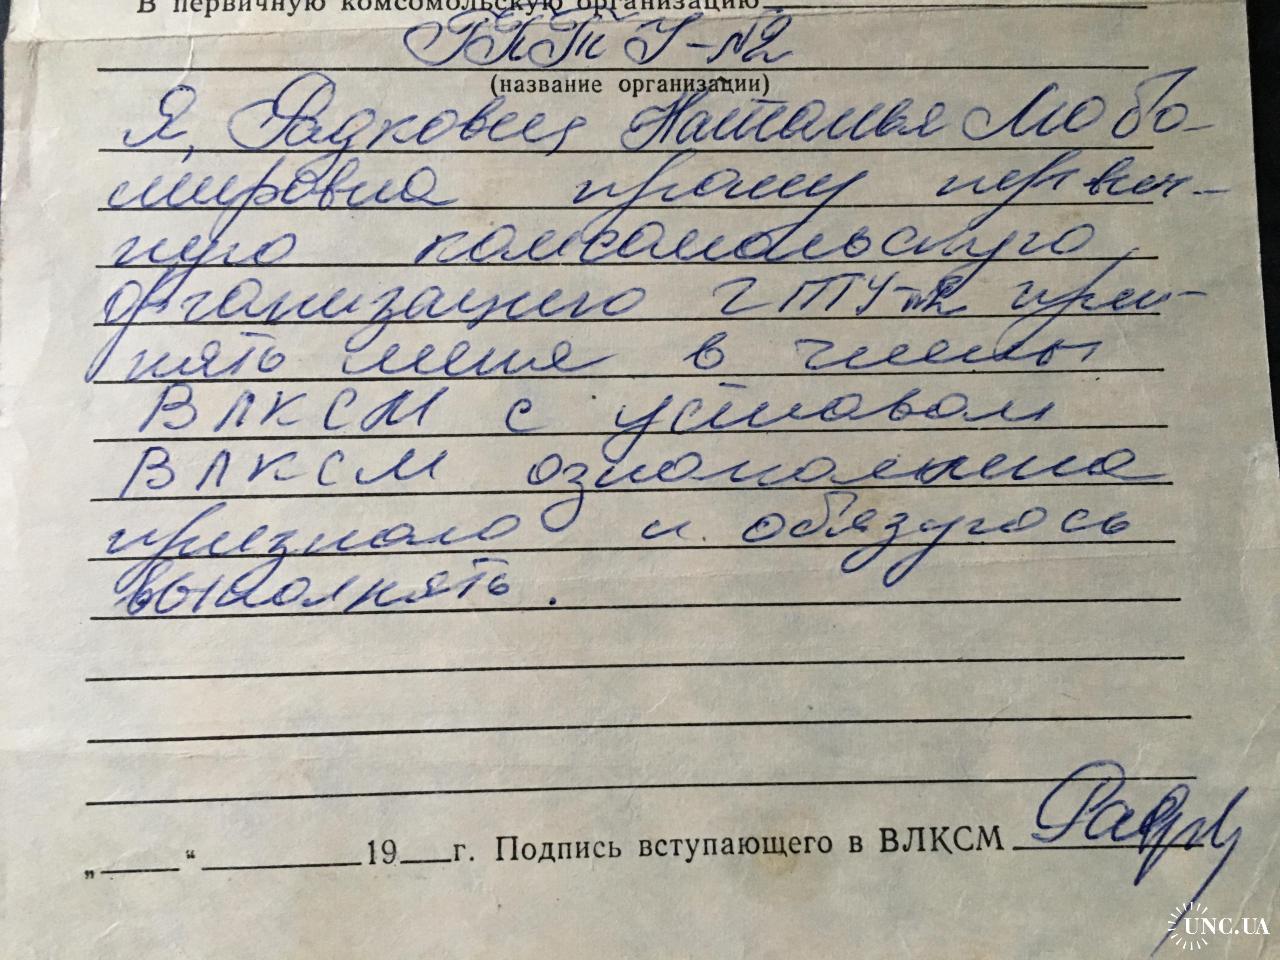 В первичную комсомольскую организацию
ГПТУ-№2
(название организации)
Я, Радковец Наталья Любо-
мировна прошу первич-
ную комсомольскую
организацию ГПТУ-№2 при-
нять меня в члены
ВЛКСМ с уставом
ВЛКСМ ознакомлена
признаю и обязуюсь
выполнять.
„ “ 19 г. Подпись вступающего в ВЛКСМ
UNC.UA